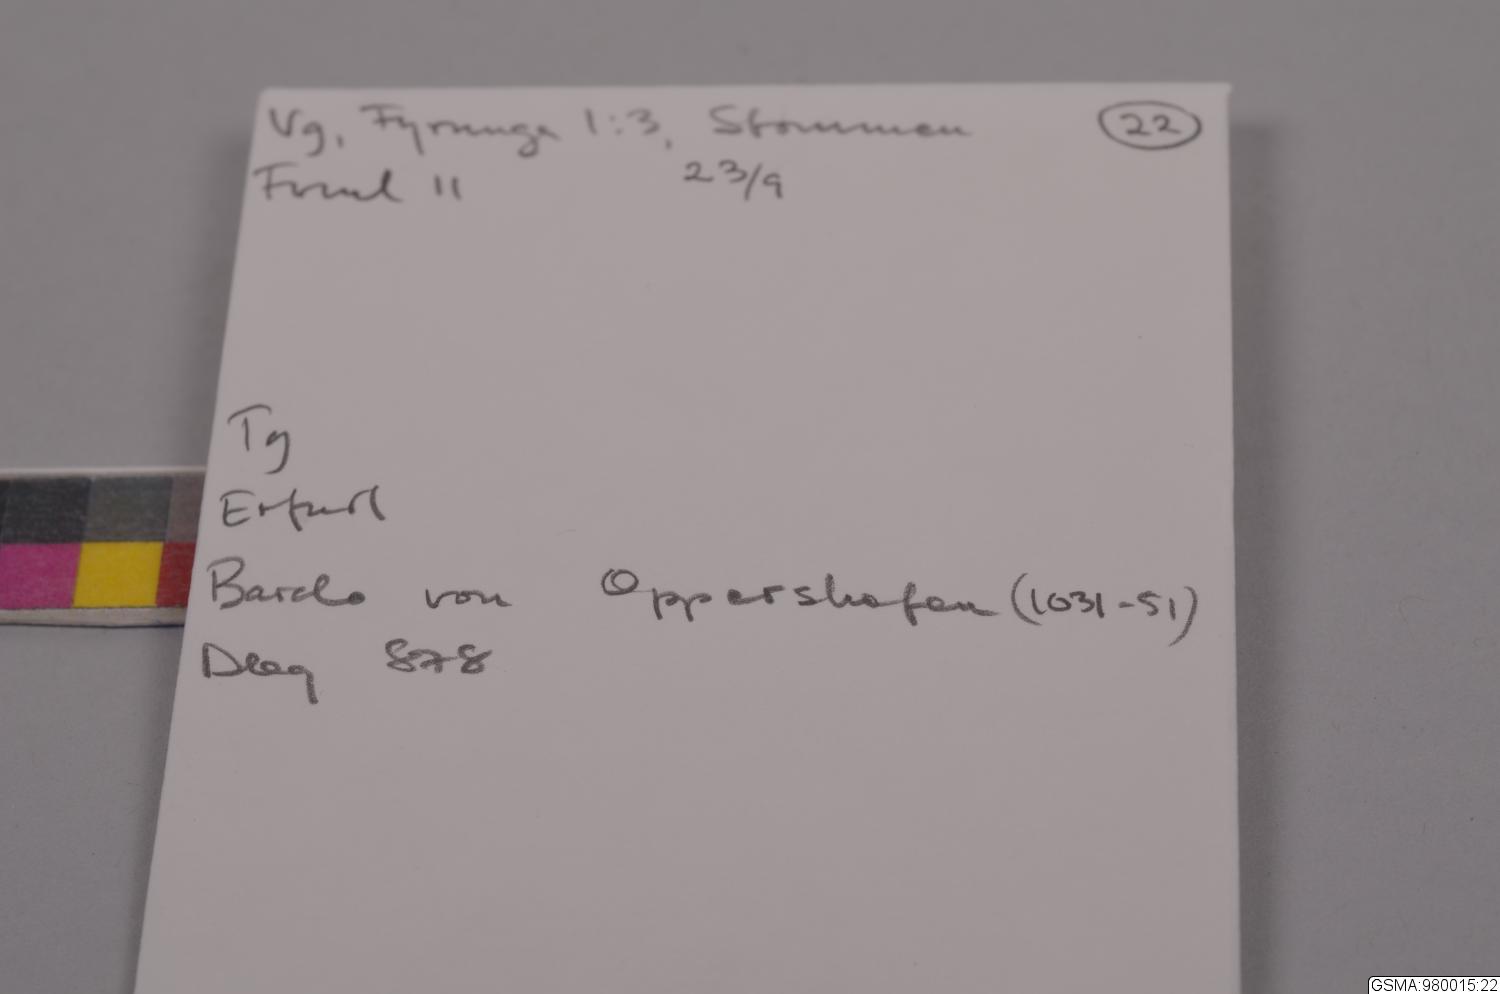 Vg, Fyrunga 1:3, Stommen 22
Fynd 11 23/9
Tg
Erfurt
Bardo von Oppershofen (1031-51)
Dbg 878
GSMA:980015:22